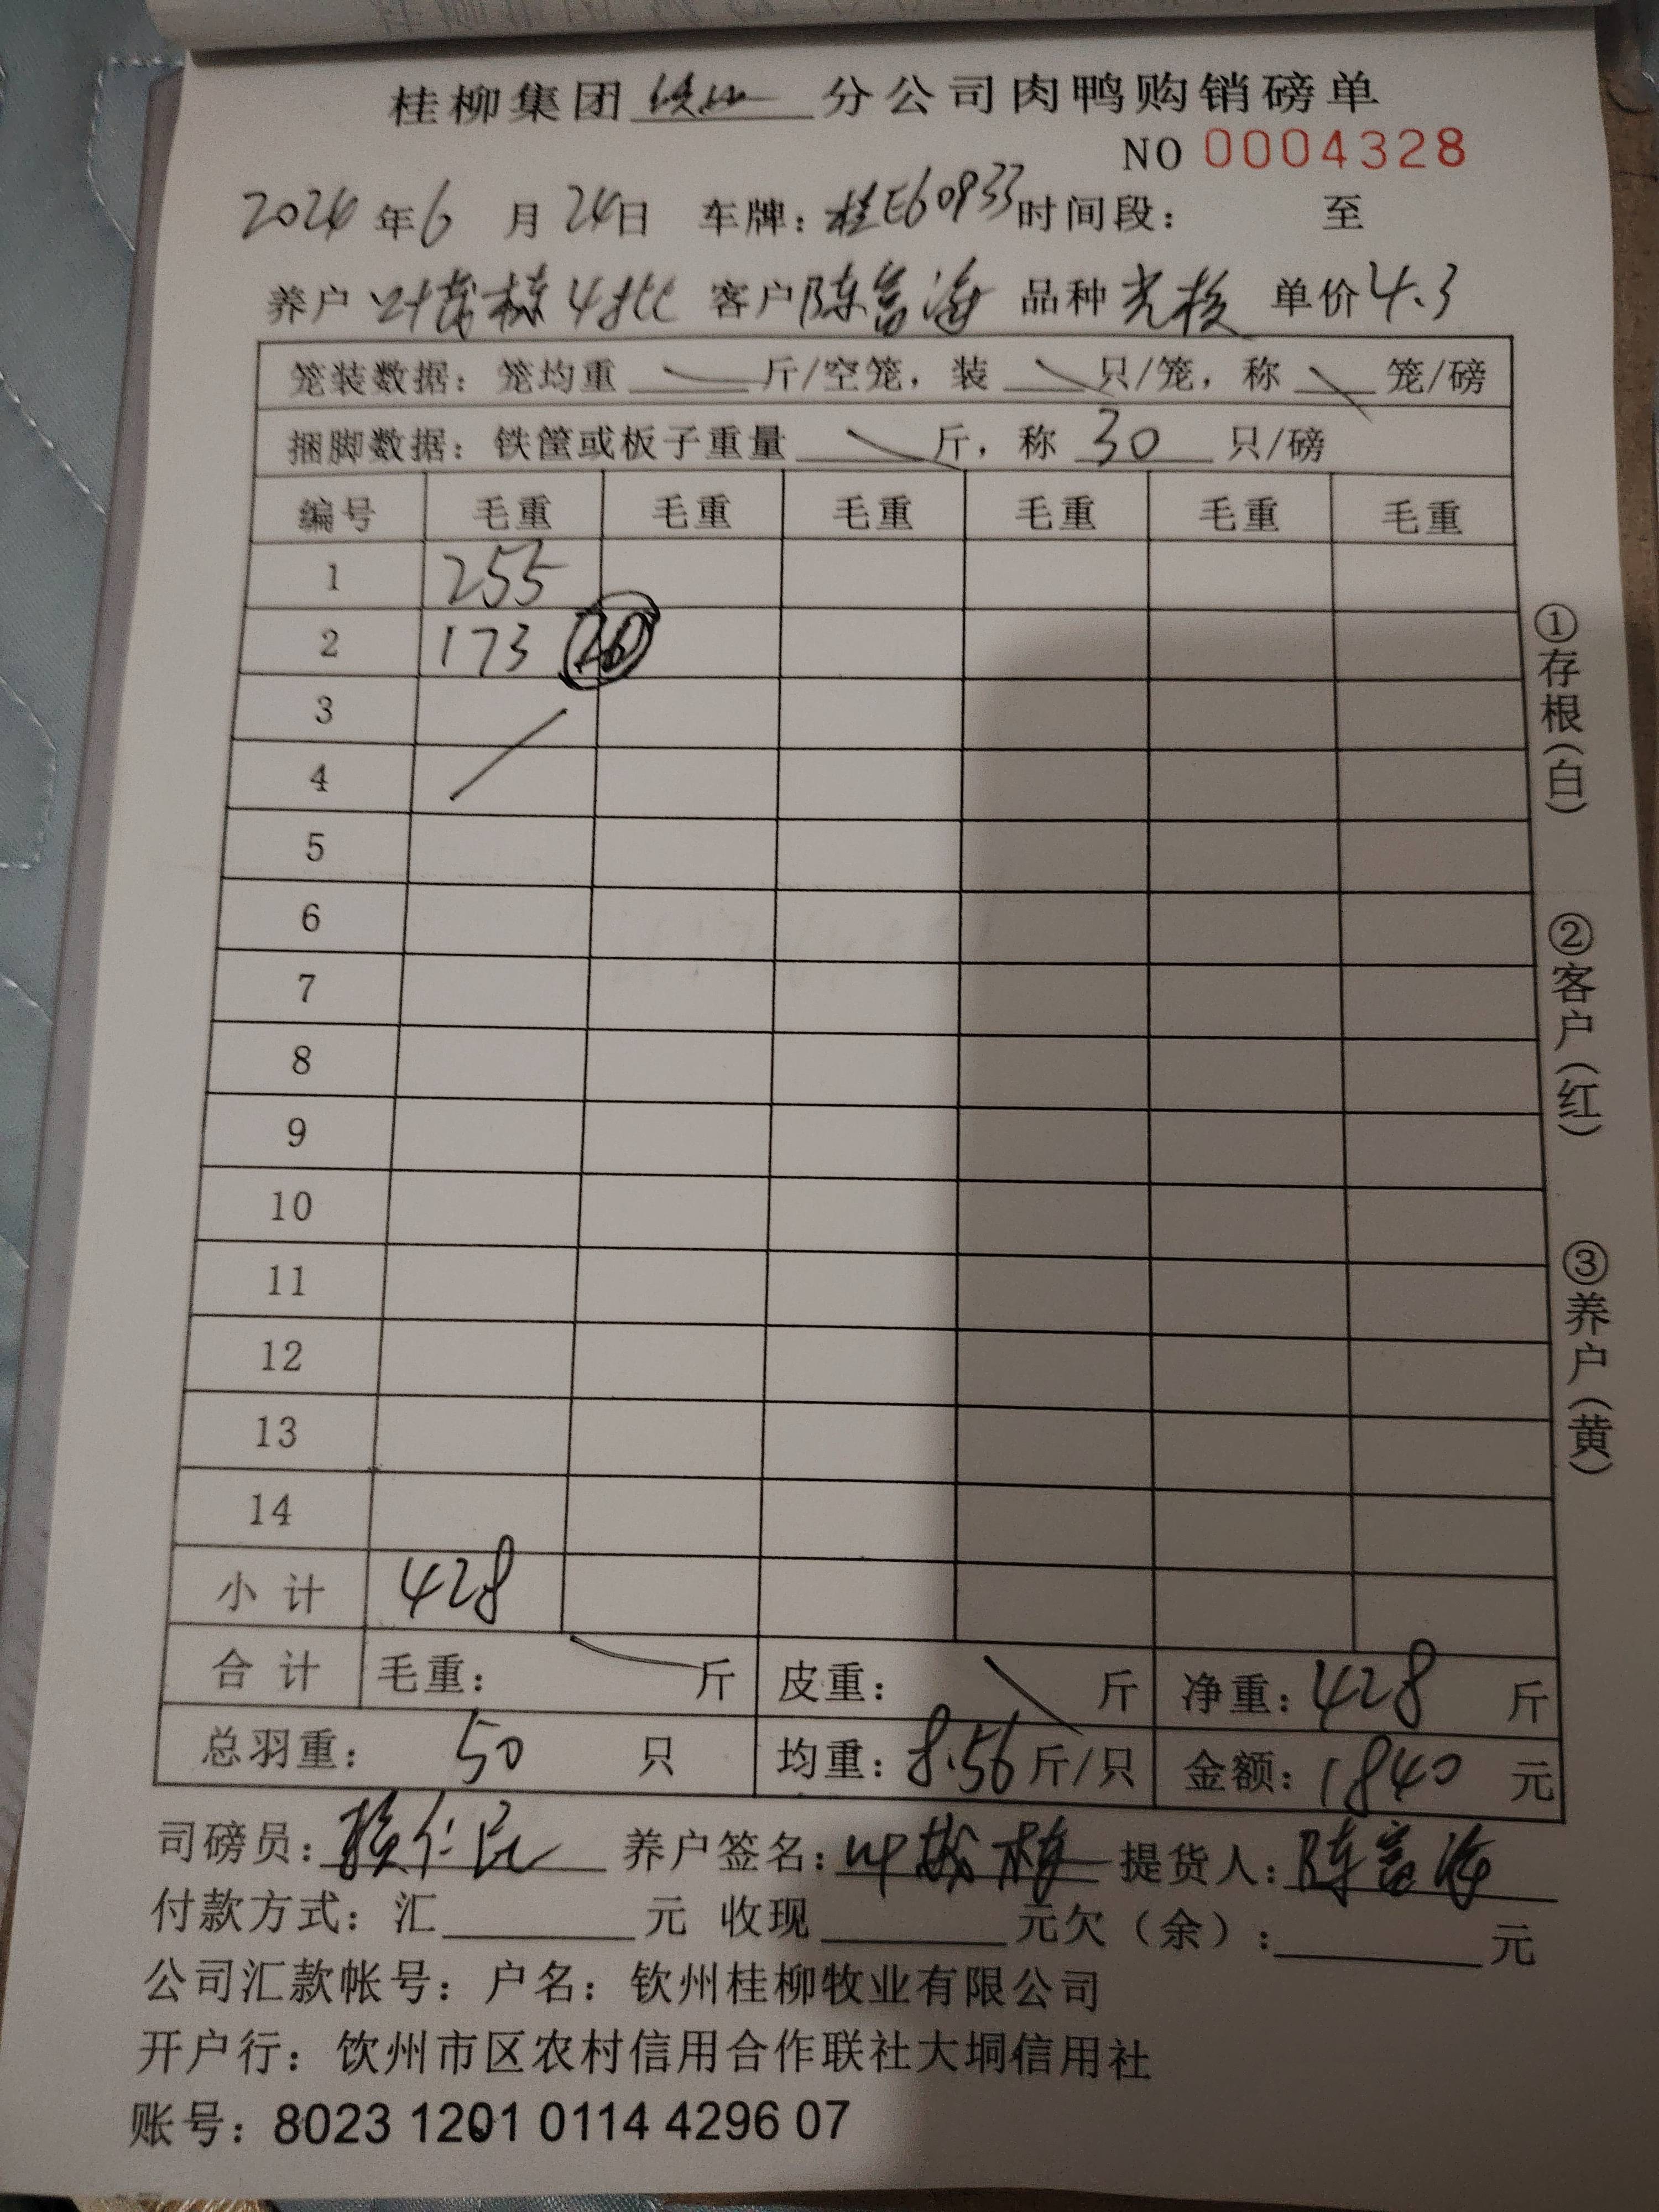 桂柳集团 分公司肉鸭购销磅单
NO 0004328
2024年6月24日 车牌：桂E60933 时间段： 至
养户 叶茂栋 4批 客户 陈富海 品种 单价 4.3
笼装数据：笼均重 斤/空笼，装 只/笼，称 笼/磅
捆脚数据：铁筐或板子重量 斤，称 30 只/磅
编号 毛重 毛重 毛重 毛重 毛重 毛重
1 255
2 173 20
3
4
5
6
7
8
9
10
11
12
13
14
小计 428
合计 毛重： 斤 皮重： 斤 净重：428 斤
总羽重： 50 只 均重：8.56 斤/只 金额：1840 元
司磅员： 养户签名： 提货人：陈富海
付款方式：汇 元 收现 元欠（余）： 元
公司汇款帐号：户名：钦州桂柳牧业有限公司
开户行：钦州市区农村信用合作联社大垌信用社
账号：8023 1201 0114 4296 07
①存根（白）
②客户（红）
③养户（黄）